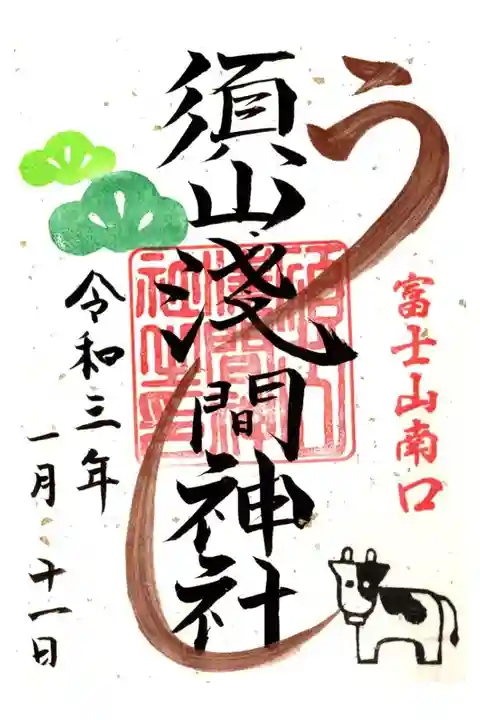 富士山南口
うし
須山淺間神社
令和三年
一月十一日